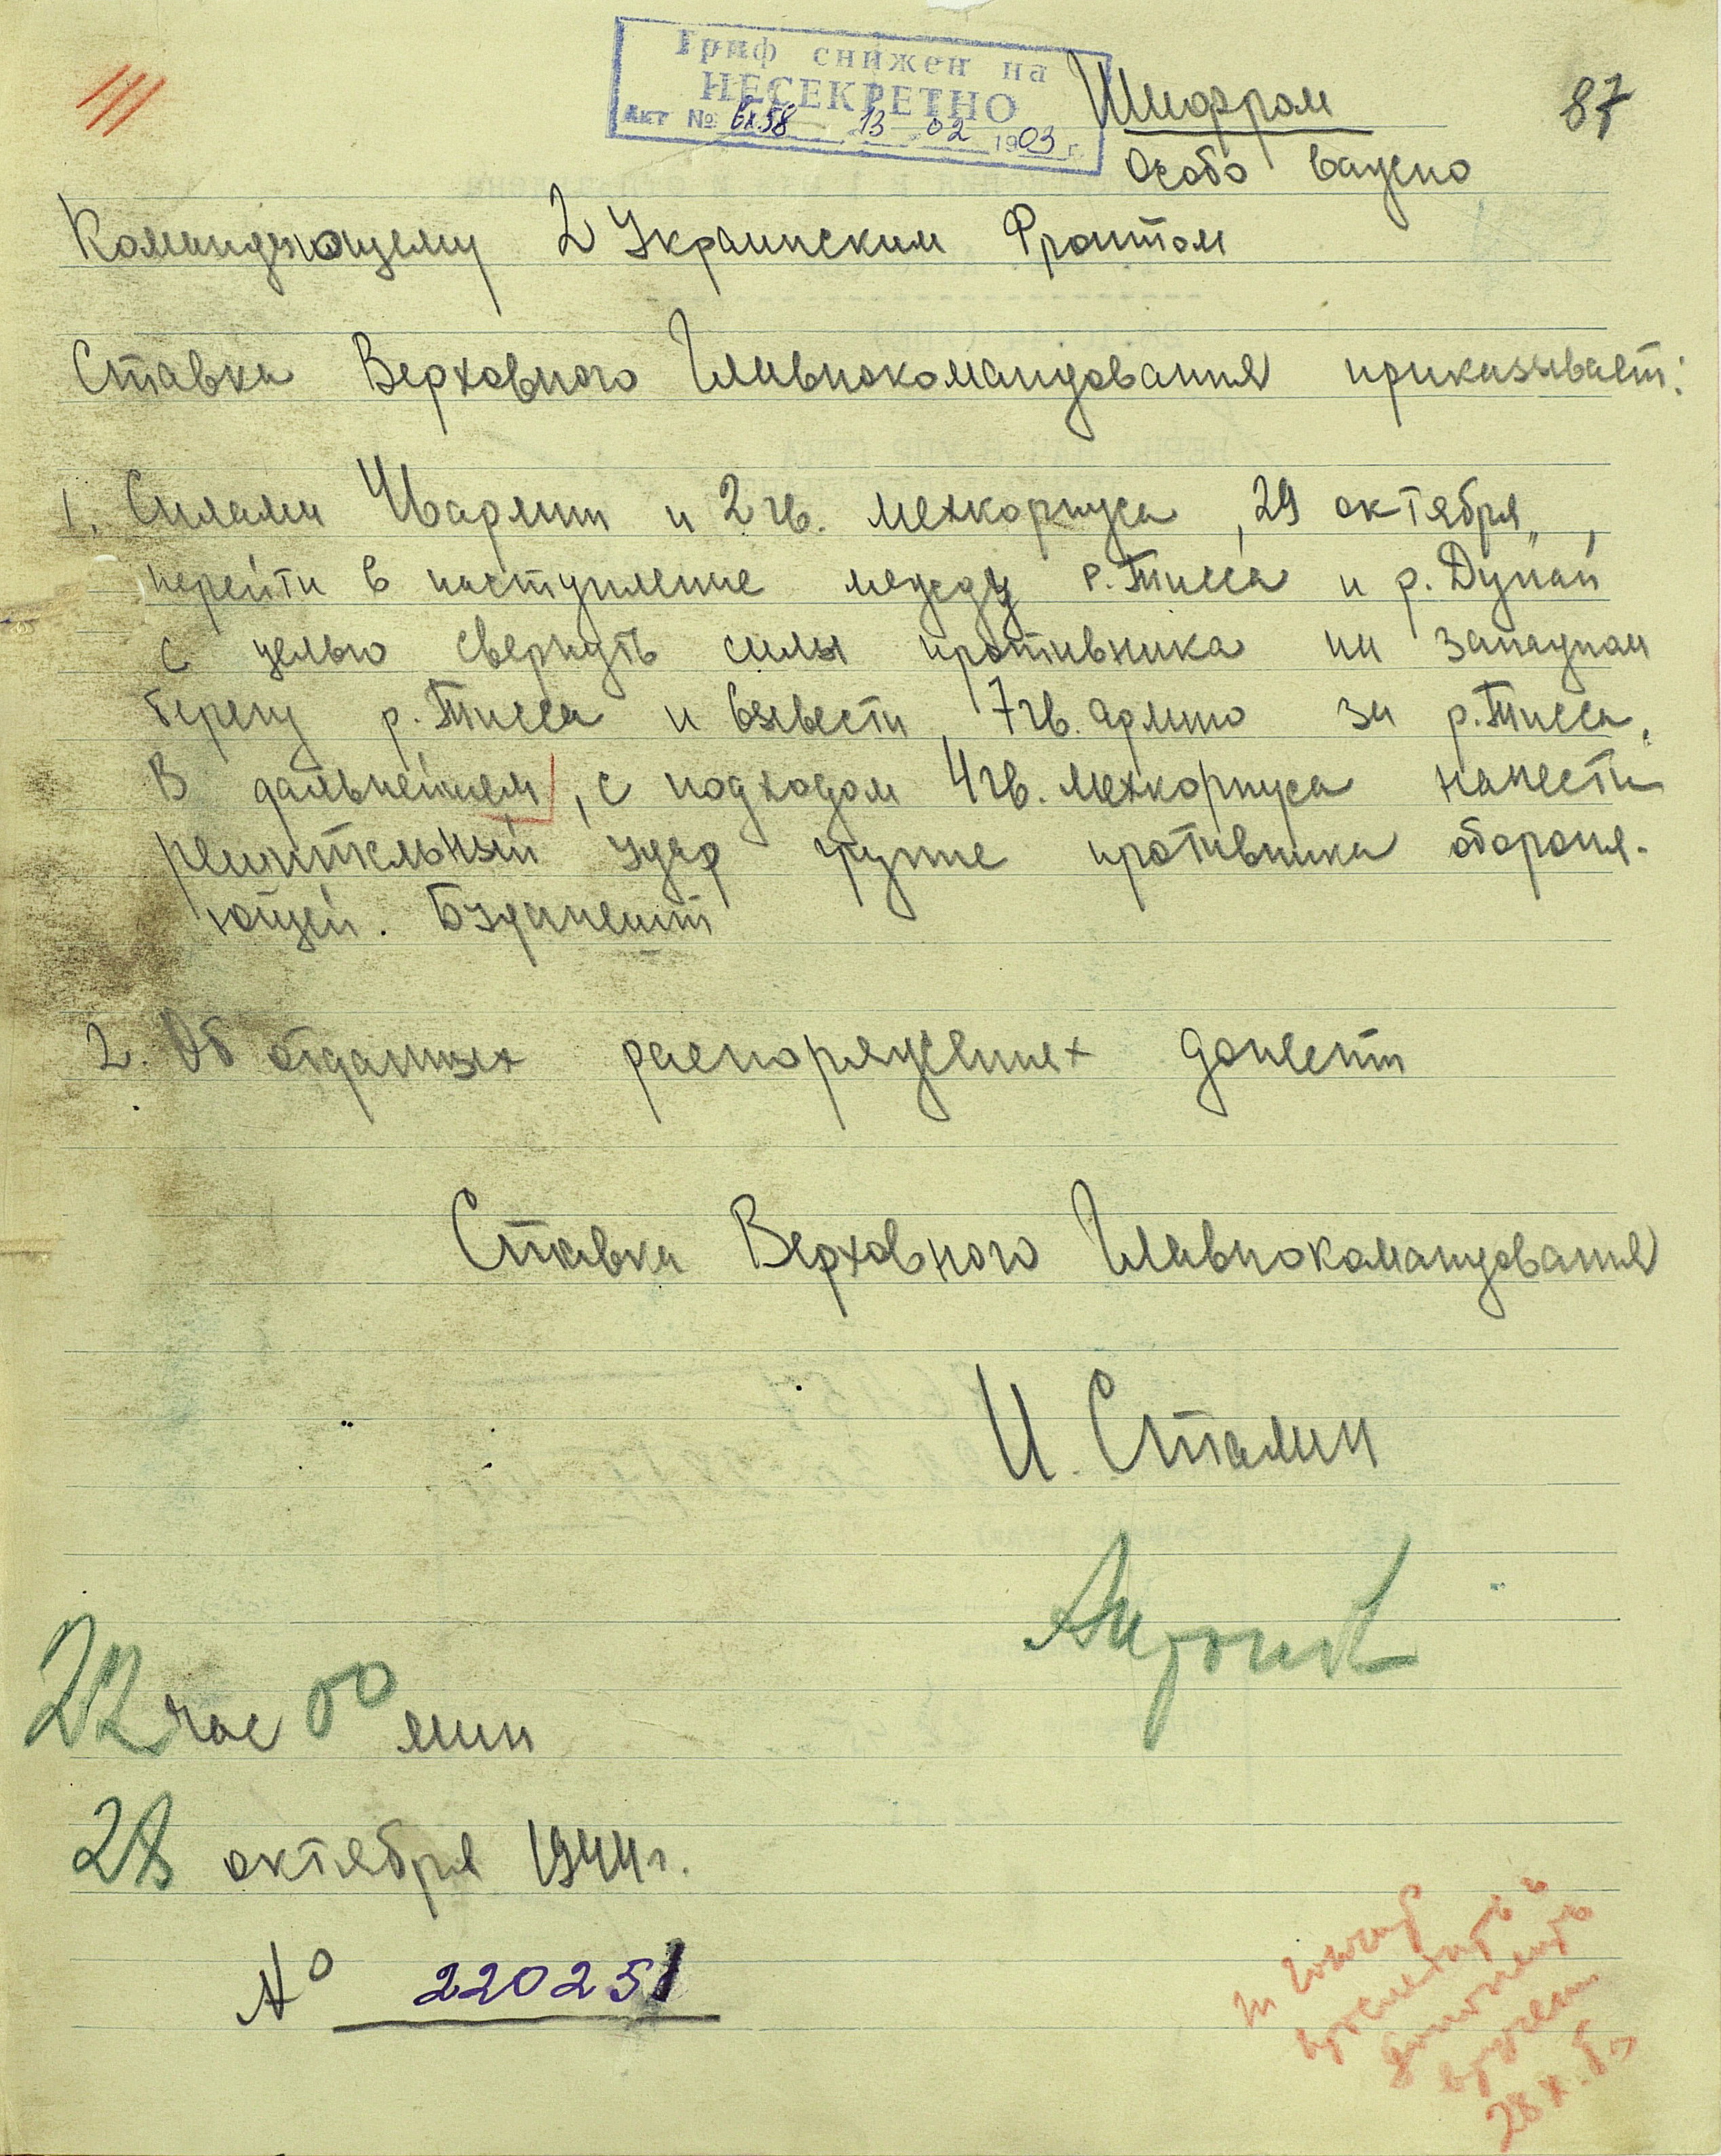 Гриф снижен на
НЕСЕКРЕТНО
Акт № 6х58 13 02 1903 г.
Шифром
87
Особо важно
Командующему 2 Украинским Фронтом
Ставка Верховного Главнокомандования приказывает:
1. Силами 46 армии и 2 гв. мехкорпуса, 29 октября,
перейти в наступление между р. Тисса и р. Дунай
с целью свернуть силы противника на западном
берегу р. Тисса и вывести 7 гв. армию за р. Тисса.
В дальнейшем, с подходом 4 гв. мехкорпуса нанести
решительный удар группе противника обороня-
ющей. Будапешт
2. Об отданных распоряжениях донести
Ставка Верховного Главнокомандования
И. Сталин
Антонов
22 час 00 мин
28 октября 1944 г.
№ 220251
28.X.